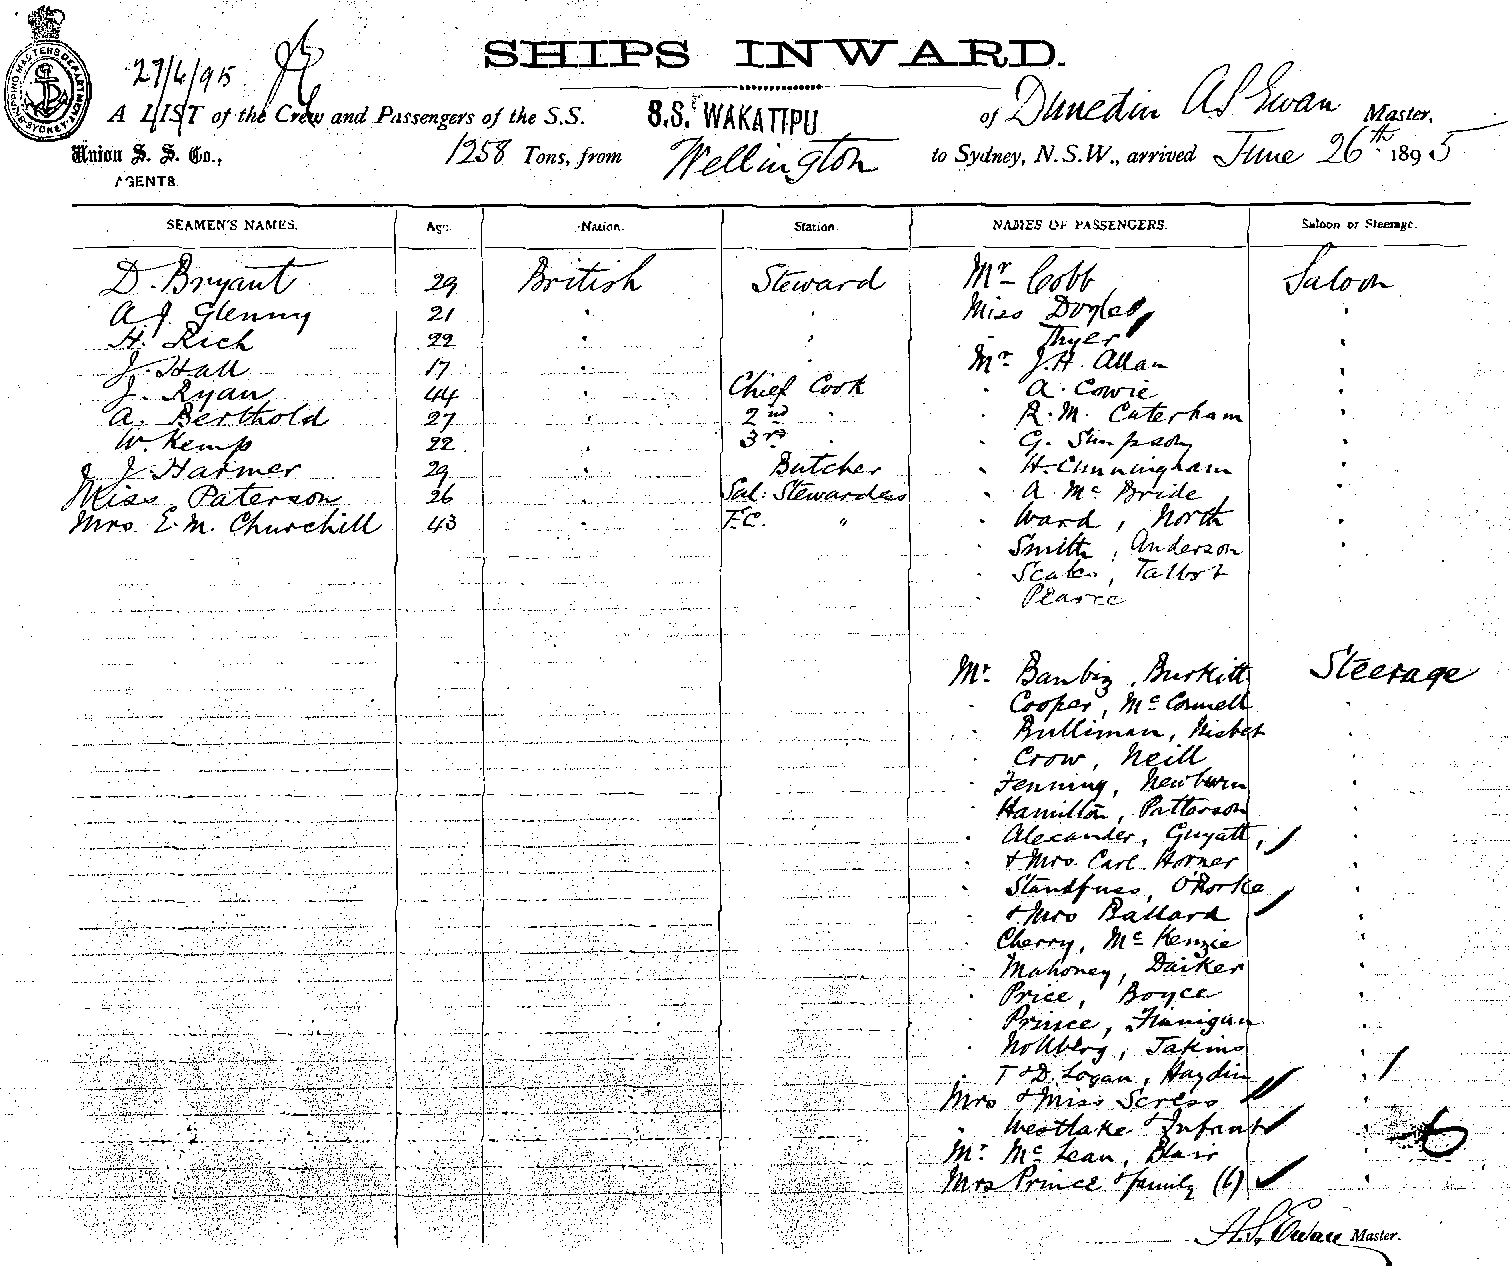 SHIPS INWARD.
27/6/95
A LIST of the Crew and Passengers of the S.S. S.S. WAKATIPU of Dunedin A S Ewan Master,
Union S. S. Co., 1258 Tons, from Wellington to Sydney, N.S.W., arrived June 26th 1895
AGENTS.
SEAMEN'S NAMES. Age. Nation. Station. NAMES OF PASSENGERS. Saloon or Steerage.
D. Bryant 29 British Steward Mr Cobb Saloon
A J Glenny 21 Miss Doyle
H. Rich 22 Thyer
J. Hall 17 Mr J.H. Allan
J. Ryan 44 Chief Cook A. Cowie
A. Berthold 27 2nd R. M. Caterham
W. Kemp 22 3rd G. Simpson
J Harmer 29 Butcher H. Cunningham
Miss Paterson 26 Sal: Stewardess A Mc Bride
Mrs. E. M. Churchill 43 F.C. " Ward, North
Smith, Anderson
Scales, Talbot
Pearce
Mr. Burkitt Steerage
Cooper, McConnell
Bulliman, Nisbet
Crow, Neill
Fenning, Newburn
Hamilton, Patterson
Alexander, Guyatt,
& Mrs. Carl Horner
Standfuss, O'Rorke
& Mrs Ballard
Cherry, McKenzie
Mahoney, Daiker
Price, Boyce
Prince, Finnigan
Jakins
T & D. Logan, Haydin
Mrs & Miss
Westlake & Infant
Mr. McLean, Blair
Mrs Prince & family (6)
A. S. Ewan Master.